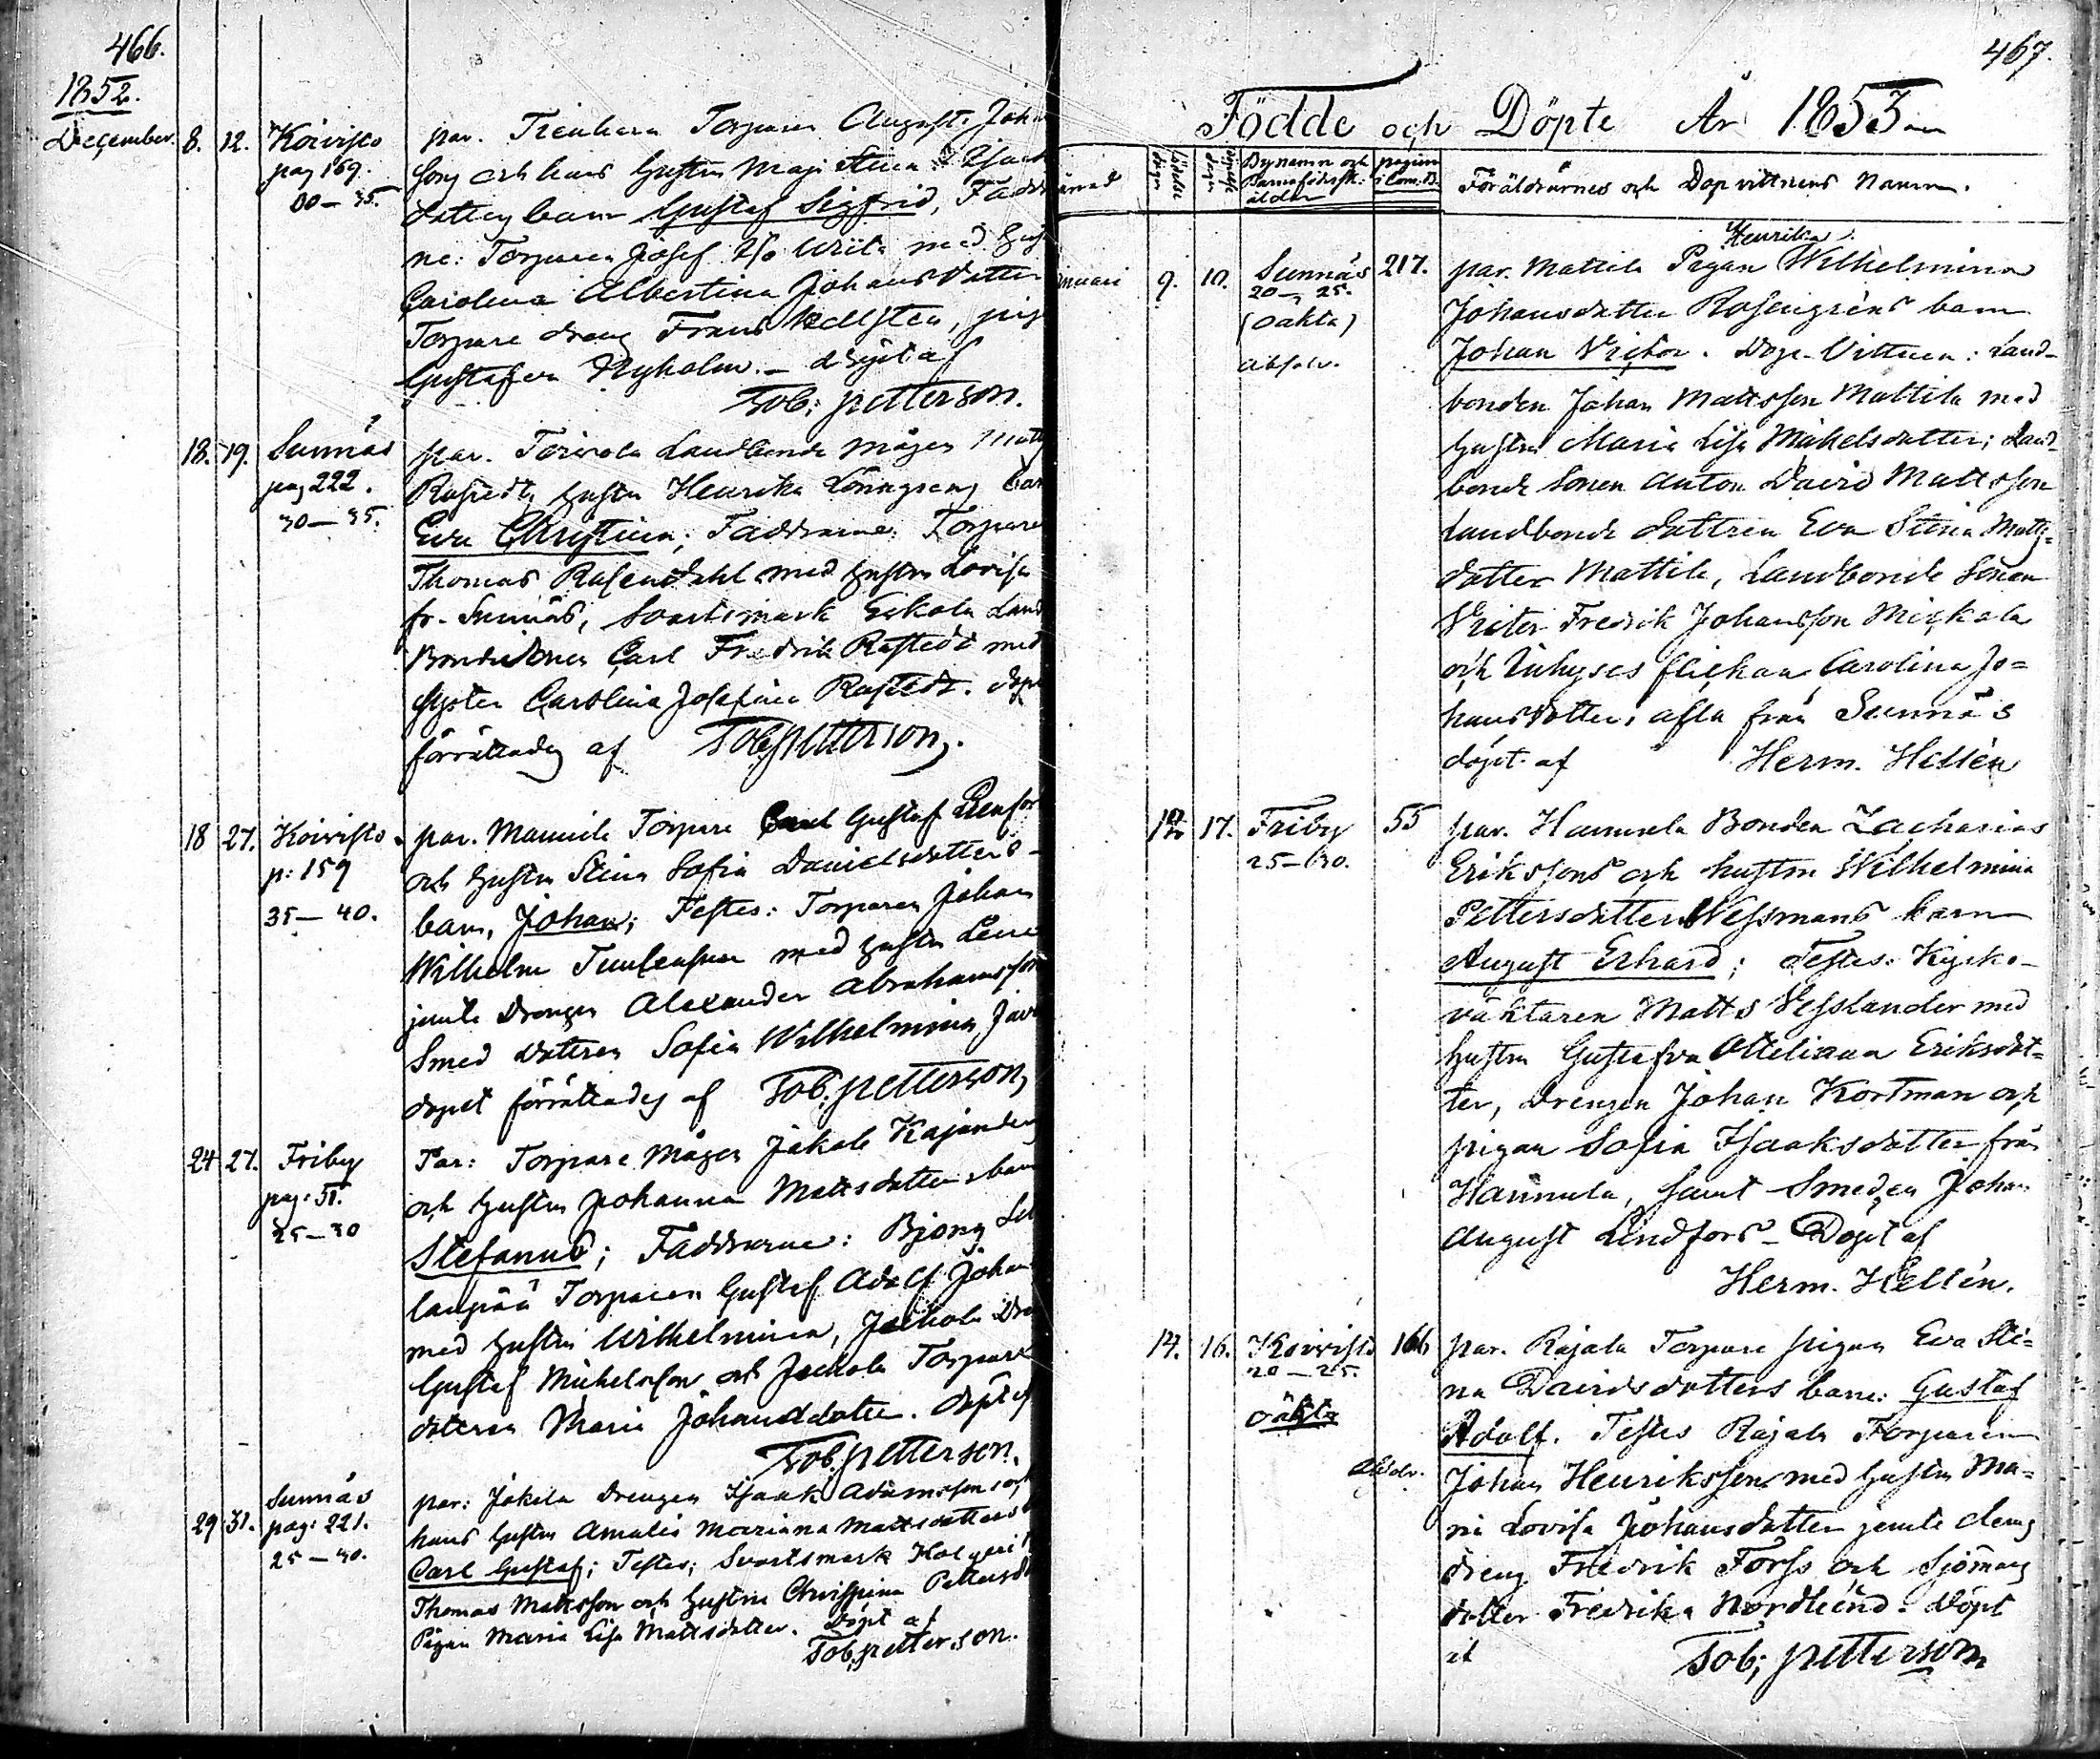 466.
1852.
December. 8. 12. Koivisto par. Torparen August Joh
pag 169. hans Hustru Maja Stina
00 — 35. dotters barn Gustaf Sigfrid, Fadd
ne: Torparen Josef med Hust
Carolina Albertina Johansdotter
Torpare dreng Frans Hellsten, pig
Gustafva Nyholm. — döpt af
Tob: petterson.
18. 19. Sunnäs par. Torvola Landbonde mågen Matts
pag 222. Rostedts hustru Henrika Barn
30 — 35. Eva Christina; Faddrarne: Torpare
Thomas Rosendahl med hustru Lovisa
fr. Sunnäs, Svartsmark Eskola Land
Carl Fredrik Rostedt med
Syster Carolina Josefina Rostedt. döpt
förrättades af Tob; petterson.
18 27. Koivisto par. Mannila Torpare Carl Gustaf
p: 159 och hustru Stina Sofia Danielsdotters
35 — 40. barn, Johan; Testes: Torparen Johan
Wilhelm med hustru Lena
jemte Drengen Alexander Abrahamsson
Smed dottren Sofia Wilhelmina
dopet förrättades af Tob; petterson,
24 27. Friby Par: Torpare mågen Jakob Kajander
pag: 51. och hustru Johanna Mattsdotters barn
25 — 30 Stefanus; Faddrarne: Björn
Torparen Gustaf Adolf Johan
med hustru Wilhelmina, Jackola Dr
Gustaf Michelsson och Jackola Torpare
dottren Maria Johansdotter. döpt af
Tob. petterson.
29 31. Sunnäs par: Jakola Drengen Isaak Adamsson och
pag: 221. hans hustru Amalia Mariana Mattsdotters
25 — 30. Carl Gustaf; Testes; Svartsmark
Thomas Mattsson och hustru Christina Petters
Pigan Maria Lisa Mattsdotter. Döpt af
Tob; petterson.
467.
Födde och Döpte År 1853
Bynamn och pagina
Barnaföderk: i Com. B.
ålder Föräldrarnes och Dopvittnens Namn.
Henrika
nuari 9. 10. Sunnäs 217. par. Mattila Pigan Wilhelmina
20 — 25. Johansdotter Rosengréns barn
(oäkta) Johan Victor. Dop-Vittnen: Land-
absolv. bonden Johan Mattsson Mattila med
hustru Maria Lisa Michelsdotter; Land-
bonde Sonen Anton David Mattsson
Landbonde dottren Eva Stina Matts-
dotter Mattila, Landbonde Sonen
Victor Fredrik Johansson Miekala
och Inhyses flickan Carolina Jo-
hansdotter, alla från Sunnäs
döpt af Herm. Hellén
17. Friby 55 par. Hannula Bonden Zacharias
25 — 30. Erikssons och hustru Wilhelmina
Pettersdotter Wessmans barn
August Erhard; Testes: Kyrko-
väktaren Matts Wesslander med
hustru Gustafva Otteliana Eriksdot-
ter, Drengen Johan Kortman och
pigan Sofia Isaaksdotter från
Hannula, samt Smeden Johan
August Lindfors — Döpt af
Herm. Hellén.
14. 16. Koivisto 166 par. Rajala Torpare pigan Eva Sti-
20 — 25. na Davidsdotters barn: Gustaf
oäkta Adolf. Testes Rajala Torparen
absolv. Johan Henriksson med hustru Ma-
ria Lovisa Johansdotter jemte
dreng Fredrik Forss och Sjömans
dotter Fredrika Nordlund. Döpt
af Tob; petterson